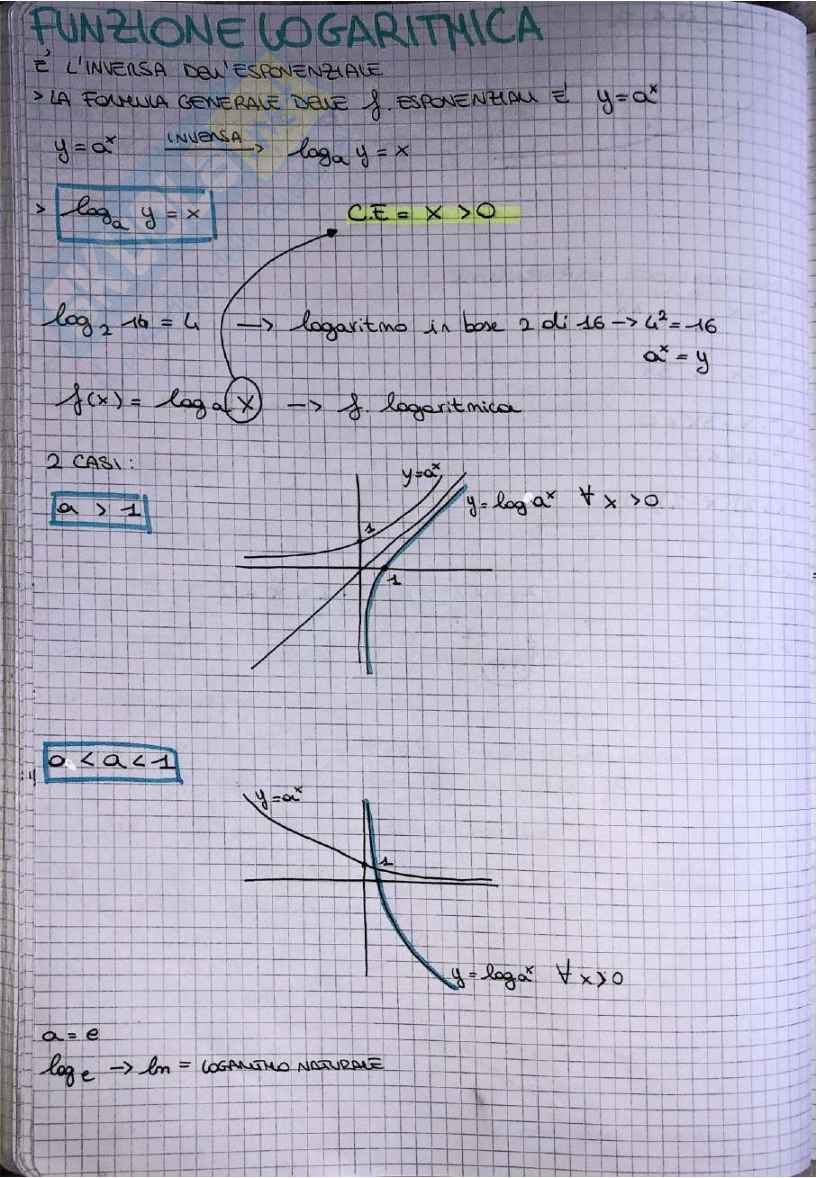 FUNZIONE LOGARITMICA
È L'INVERSA DELL'ESPONENZIALE
> LA FORMULA GENERALE DELLE f. ESPONENZIALI È y=aˣ
y=aˣ INVERSA → logₐ y = x
> logₐ y = x C.E = x > 0
log₂ 16 = 4 –> logaritmo in base 2 di 16 –> 4² = 16
aˣ = y
f(x) = logₐ x –> f. logaritmica
2 CASI:
a > 1
y=aˣ
y = log aˣ ∀ x > 0
1
1
0 < a < 1
y=aˣ
1
y = log aˣ ∀ x > 0
a = e
logₑ –> ln = LOGARITMO NATURALE